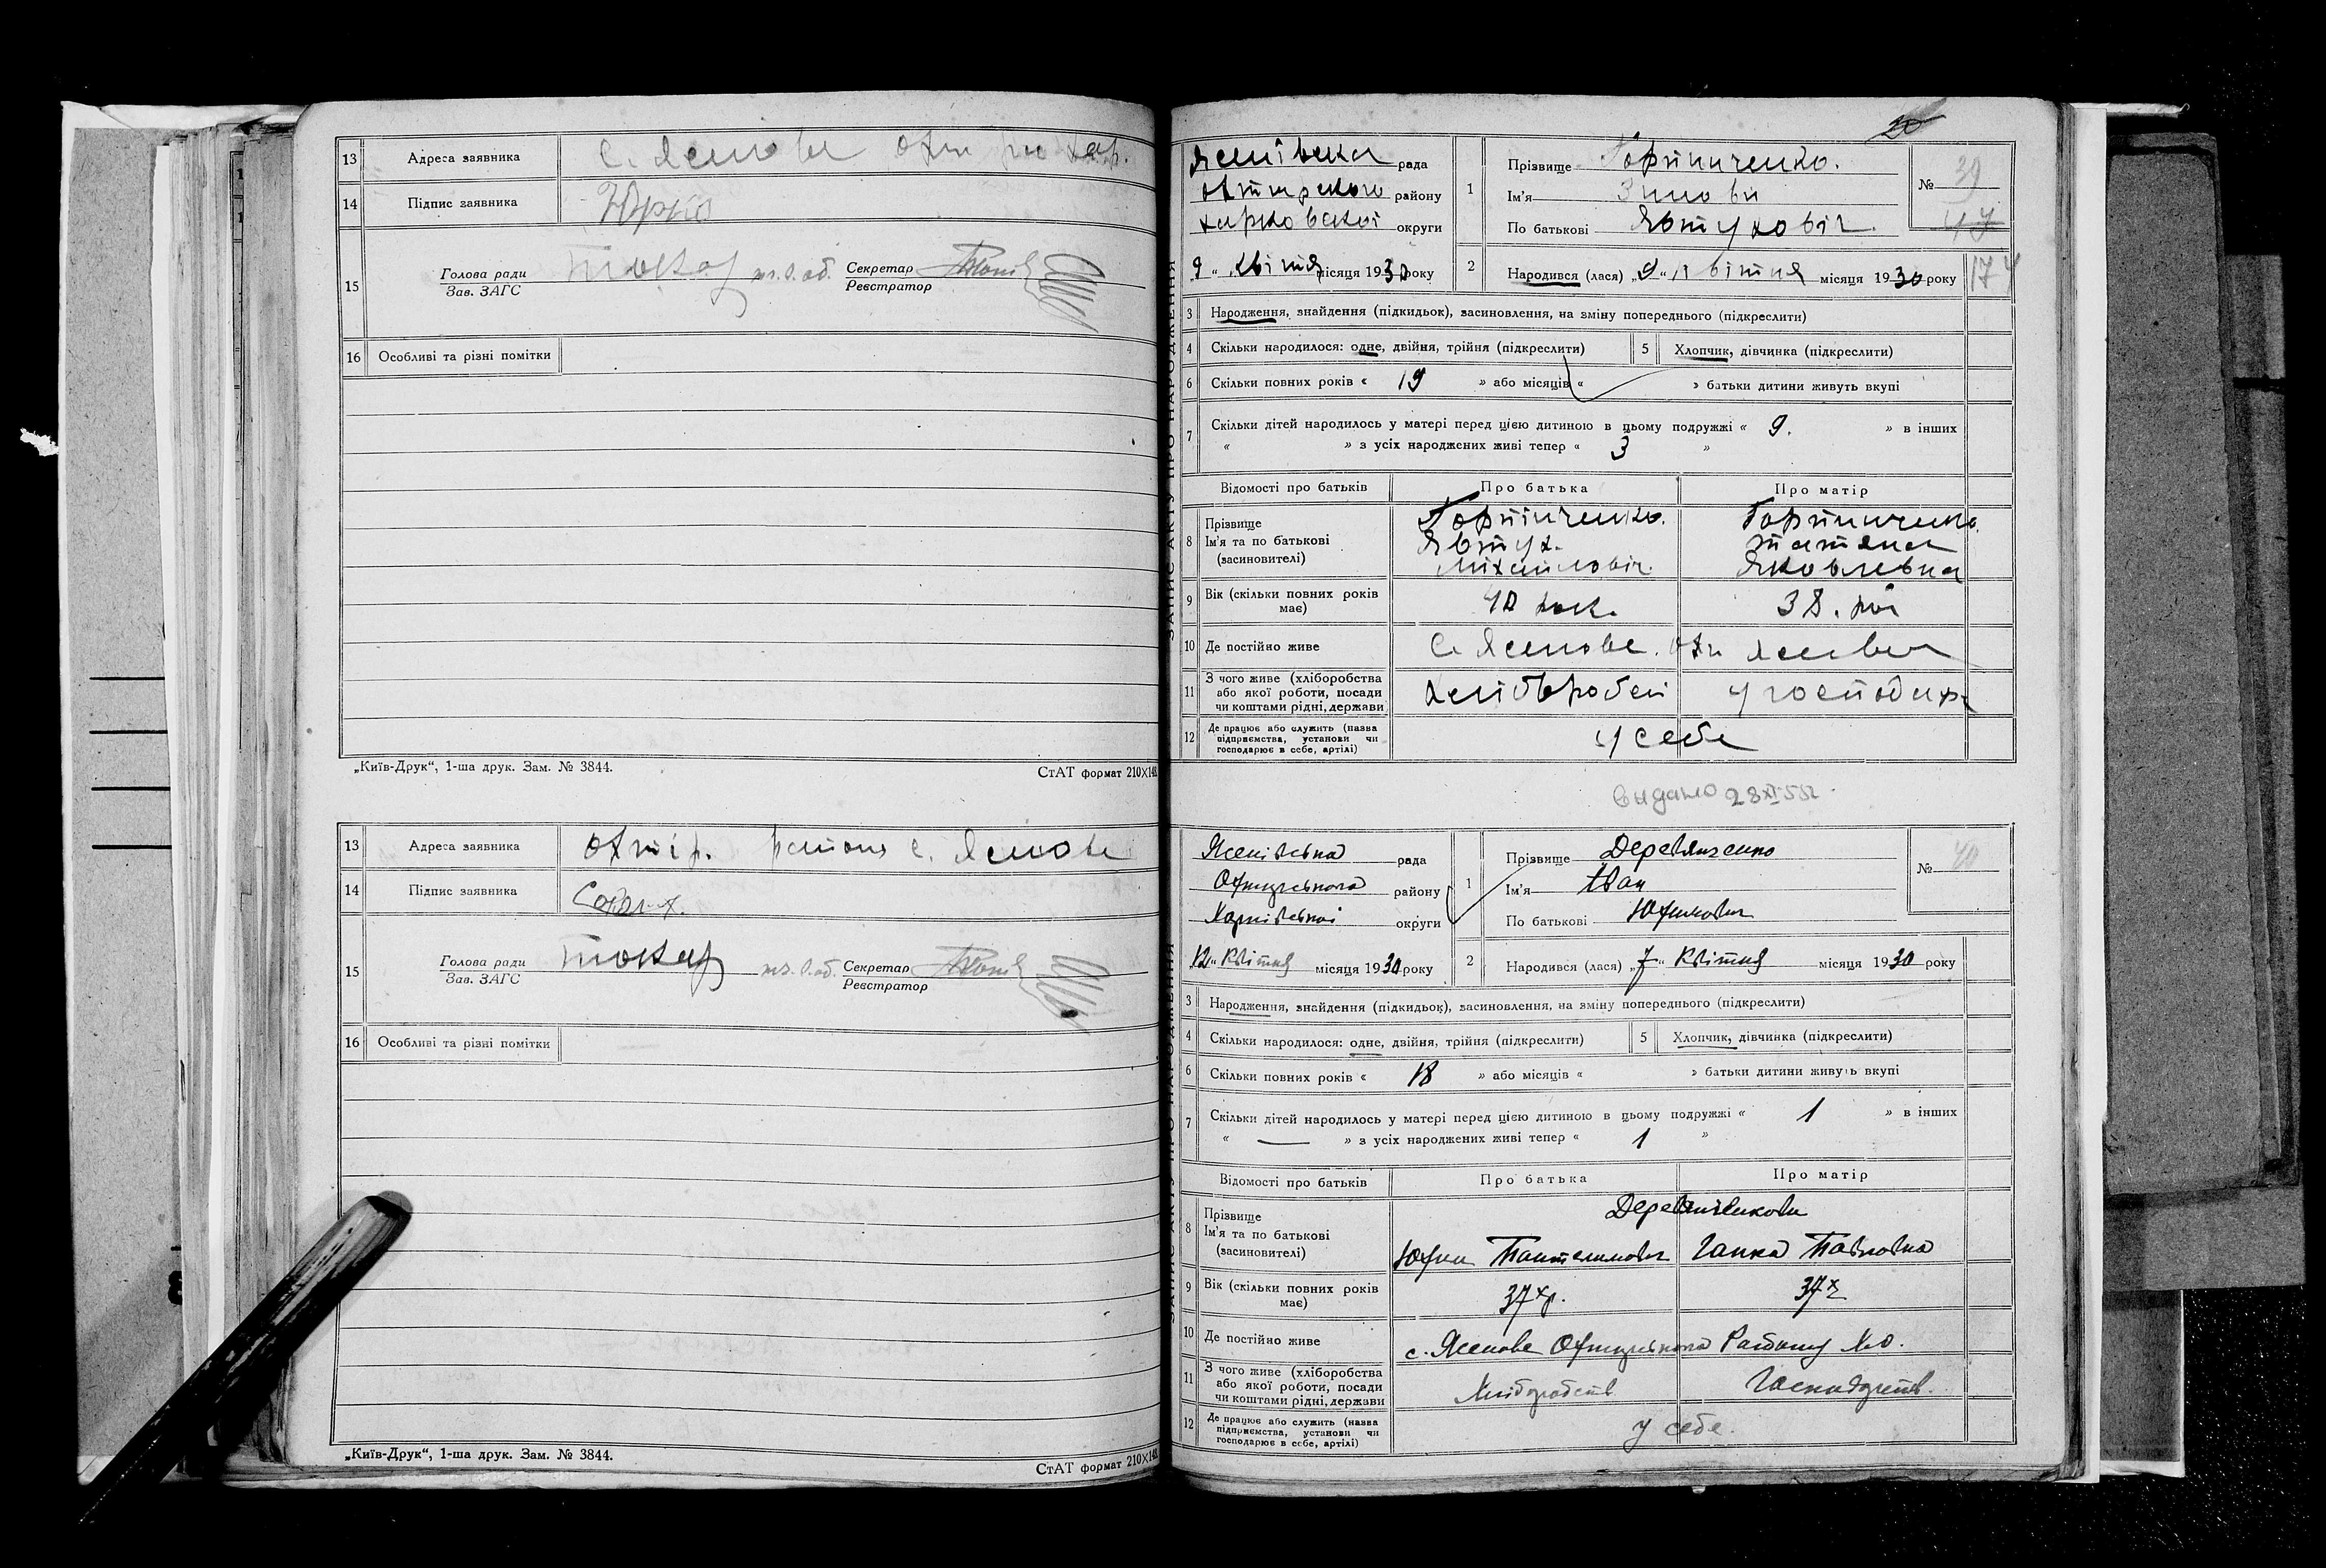 13 Адреса заявника с. Ясенове Охтир
14 Підпис заявника
15 Голова ради Токар Секретар
Зав. ЗАГС Реєстратор
16 Особливі та різні помітки
„Київ-Друк“, 1-ша друк. Зам. № 3844. СтАТ формат 210×148
13 Адреса заявника Охтір. району с. Ясенове
14 Підпис заявника
15 Голова ради Токар Секретар
Зав. ЗАГС Реєстратор
16 Особливі та різні помітки
„Київ-Друк“, 1-ша друк. Зам. № 3844. СтАТ формат 210×148
20
ЗАПИС АКТУ ПРО НАРОДЖЕННЯ
Ясенівська рада
Охтирского району
Харковської округи
9 „ квітня місяця 1930 року
1 Прізвище Горпинченко.
Ім'я Зиновій
По батькові Явтухович.
№ 39
47
2 Народився (лася) „9“ квітня місяця 1930 року
174
3 Народження, знайдення (підкидьок), засиновлення, на зміну попереднього (підкреслити)
4 Скільки народилося: одне, двійня, трійня (підкреслити) 5 Хлопчик, дівчинка (підкреслити)
6 Скільки повних років « 19 » або місяців « » батьки дитини живуть вкупі
7 Скільки дітей народилось у матері перед цією дитиною в цьому подружжі « 9. » в інших
« » з усіх народжених живі тепер « 3 »
Відомості про батьків Про батька Про матір
8 Прізвище Горпінченко. Горпинченко.
Ім'я та по батькові Явтух. Татяна
(засиновителі) Міхайловіч. Яковлевна
9 Вік (скільки повних років має) 40 рок. 38. рок
10 Де постійно живе С. Ясенове. Охт Ясенове
11 З чого живе (хліборобства
або якої роботи, посади
чи коштами рідні, держави
12 Де працює або служить (назва
підприємства, установи чи
господарює в себе, артілі) у себе
выдано 28 XI 55г.
Ясенівська рада
Охтирського району
Харківської округи
„12“ Квітня місяця 1930 року
1 Прізвище Деревянченко
Ім'я Іван
По батькові Юхимович
№ 40
2 Народився (лася) „7“ Квітня місяця 1930 року
3 Народження, знайдення (підкидьок), засиновлення, на зміну попереднього (підкреслити)
4 Скільки народилося: одне, двійня, трійня (підкреслити) 5 Хлопчик, дівчинка (підкреслити)
6 Скільки повних років « 18 » або місяців « » батьки дитини живуть вкупі
7 Скільки дітей народилось у матері перед цією дитиною в цьому подружжі « 1 » в інших
« — » з усіх народжених живі тепер « 1 »
Відомості про батьків Про батька Про матір
8 Прізвище
Ім'я та по батькові
(засиновителі) Юхим Пантелимович Ганна Павловна
9 Вік (скільки повних років має) 37 х р. 37 х
10 Де постійно живе с. Ясенове Охтирського Району Х.О.
11 З чого живе (хліборобства
або якої роботи, посади
чи коштами рідні, держави Хліборобств Господарств.
12 Де працює або служить (назва
підприємства, установи чи
господарює в себе, артілі) у себе.
ЗАПИС АКТУ ПРО НАРОДЖЕННЯ